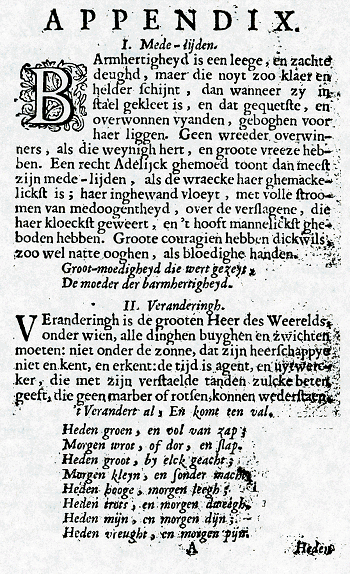 APPENDIX.
I. Mede-lijden.
BArmhertigheyd is een leege, en zachte
deughd, maer die noyt zoo klaer en
helder schijnt, dan wanneer zy in
stael gekleet is, en dat gequetste, en
overwonnen vyanden, geboghen voor
haer liggen. Geen wreeder overwin-
ners, als die weynigh hert, en groote vreeze heb-
ben. Een recht Adelijck ghemoed toont dan meest
zijn mede-lijden, als de wraecke haer ghemacke-
lickst is; haer inghewand vloeyt, met volle stroo-
men van medoogentheyd, over de verslagene, die
haer kloeckst geweert, en 't hooft mannelickst ghe-
boden hebben. Groote couragien hebben dickwils,
zoo wel natte ooghen, als bloedighe handen.
Groot-moedigheyd die wert gezeyt,
De moeder der barmhertigheyd.
II. Veranderingh.
VEranderingh is de grooten Heer des Weerelds,
onder wien, alle dinghen buyghen en zwichten
moeten: niet onder de zonne, dat zijn heerschappye
niet en kent, en erkent: de tijd is agent, en uytwerc-
ker, die met zijn verstaelde tanden zulcke beten
geeft, die geen marber of rotsen, konnen wederstaen.
't Verandert al, En komt ten val.
Heden groen, en vol van zap;
Morgen wrot, of dor, en slap.
Heden groot, by elck geacht;
Morgen kleyn, en sonder macht.
Heden hooge, morgen leegh;
Heden trots, en morgen dweegh.
Heden mijn, en morgen dijn;
Heden vreught, en morgen pijn.
A Heden